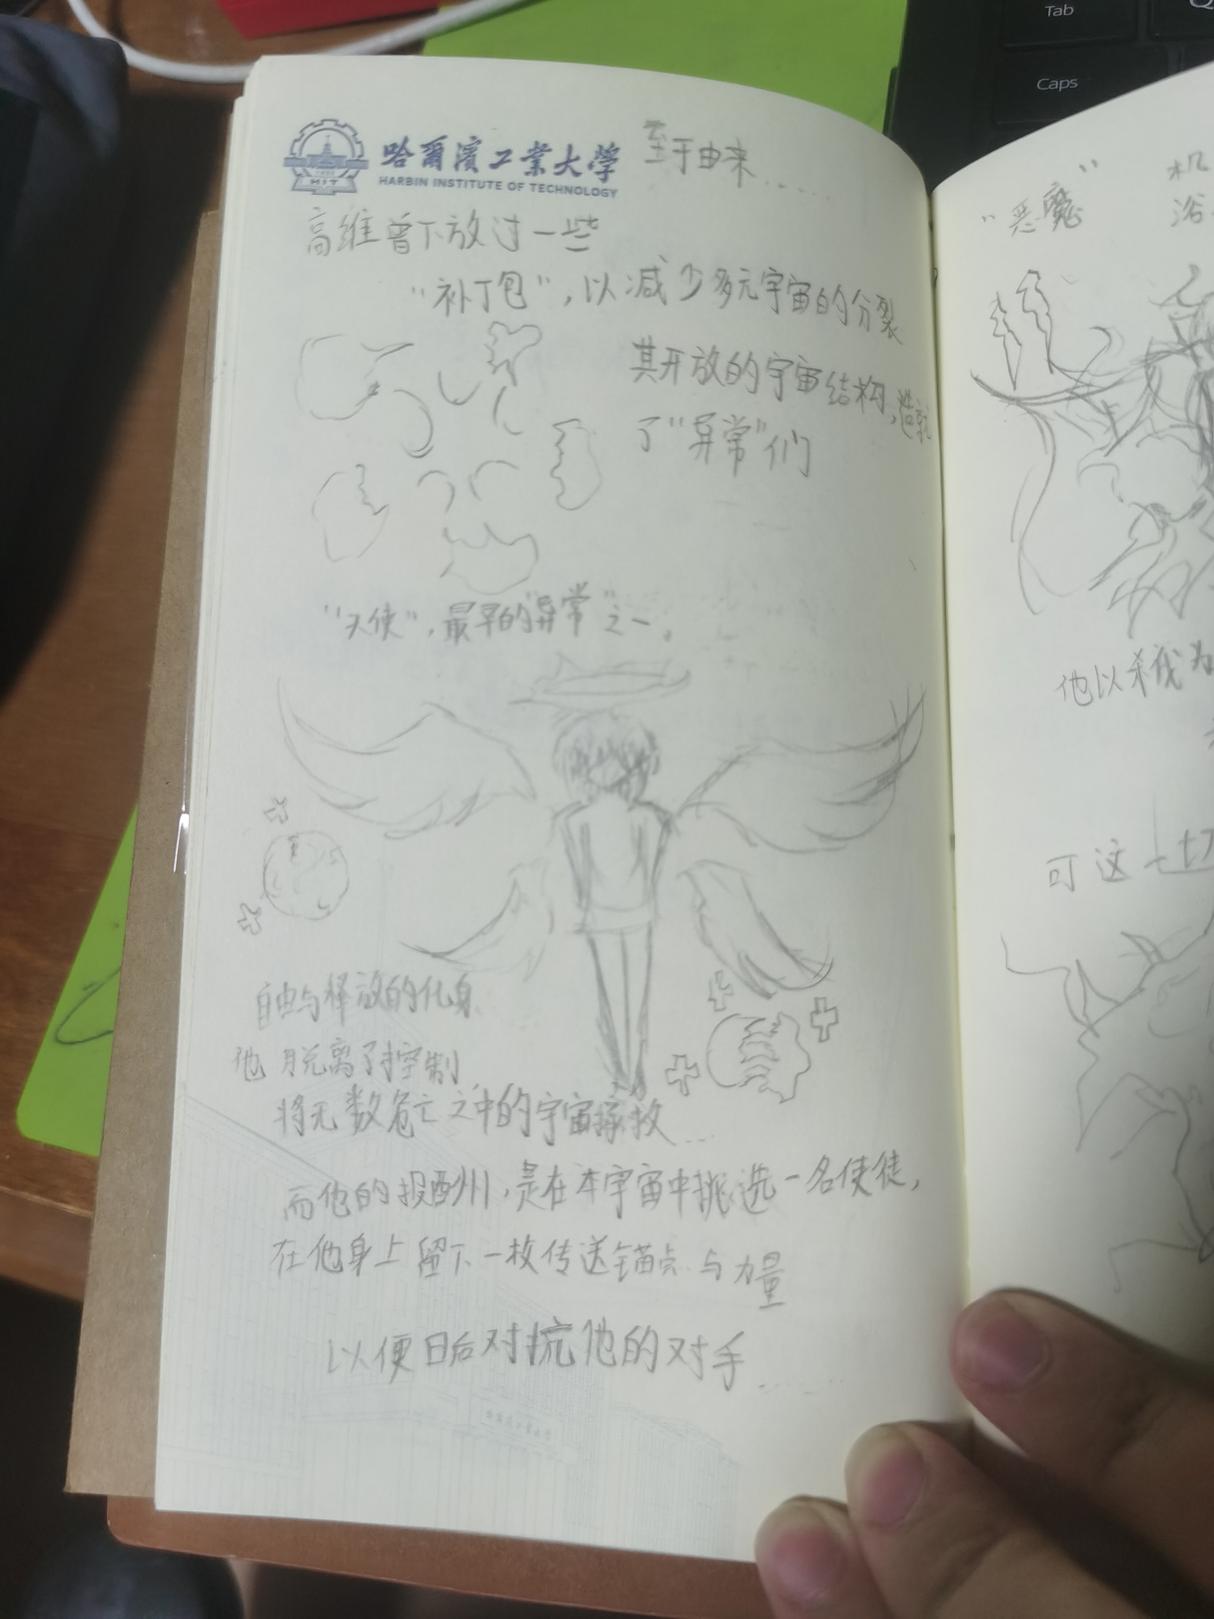 Tab
Caps
哈爾濱工業大學
HARBIN INSTITUTE OF TECHNOLOGY
HIT
至于由来......
高维曾下放过一些
“补丁包”，以减少多元宇宙的分裂
其开放的宇宙结构，造就
了“异常”们
“天使”，最早的“异常”之一。
自由与释放的化身
他脱离了控制
将无数危亡之中的宇宙拯救...
而他的报酬州，是在本宇宙中挑选一名使徒，
在他身上留下一枚传送锚点与力量
以便日后对抗他的对手......
哈爾濱工業大學
“恶魔”
机
浴
他以杀伐为
可这一切